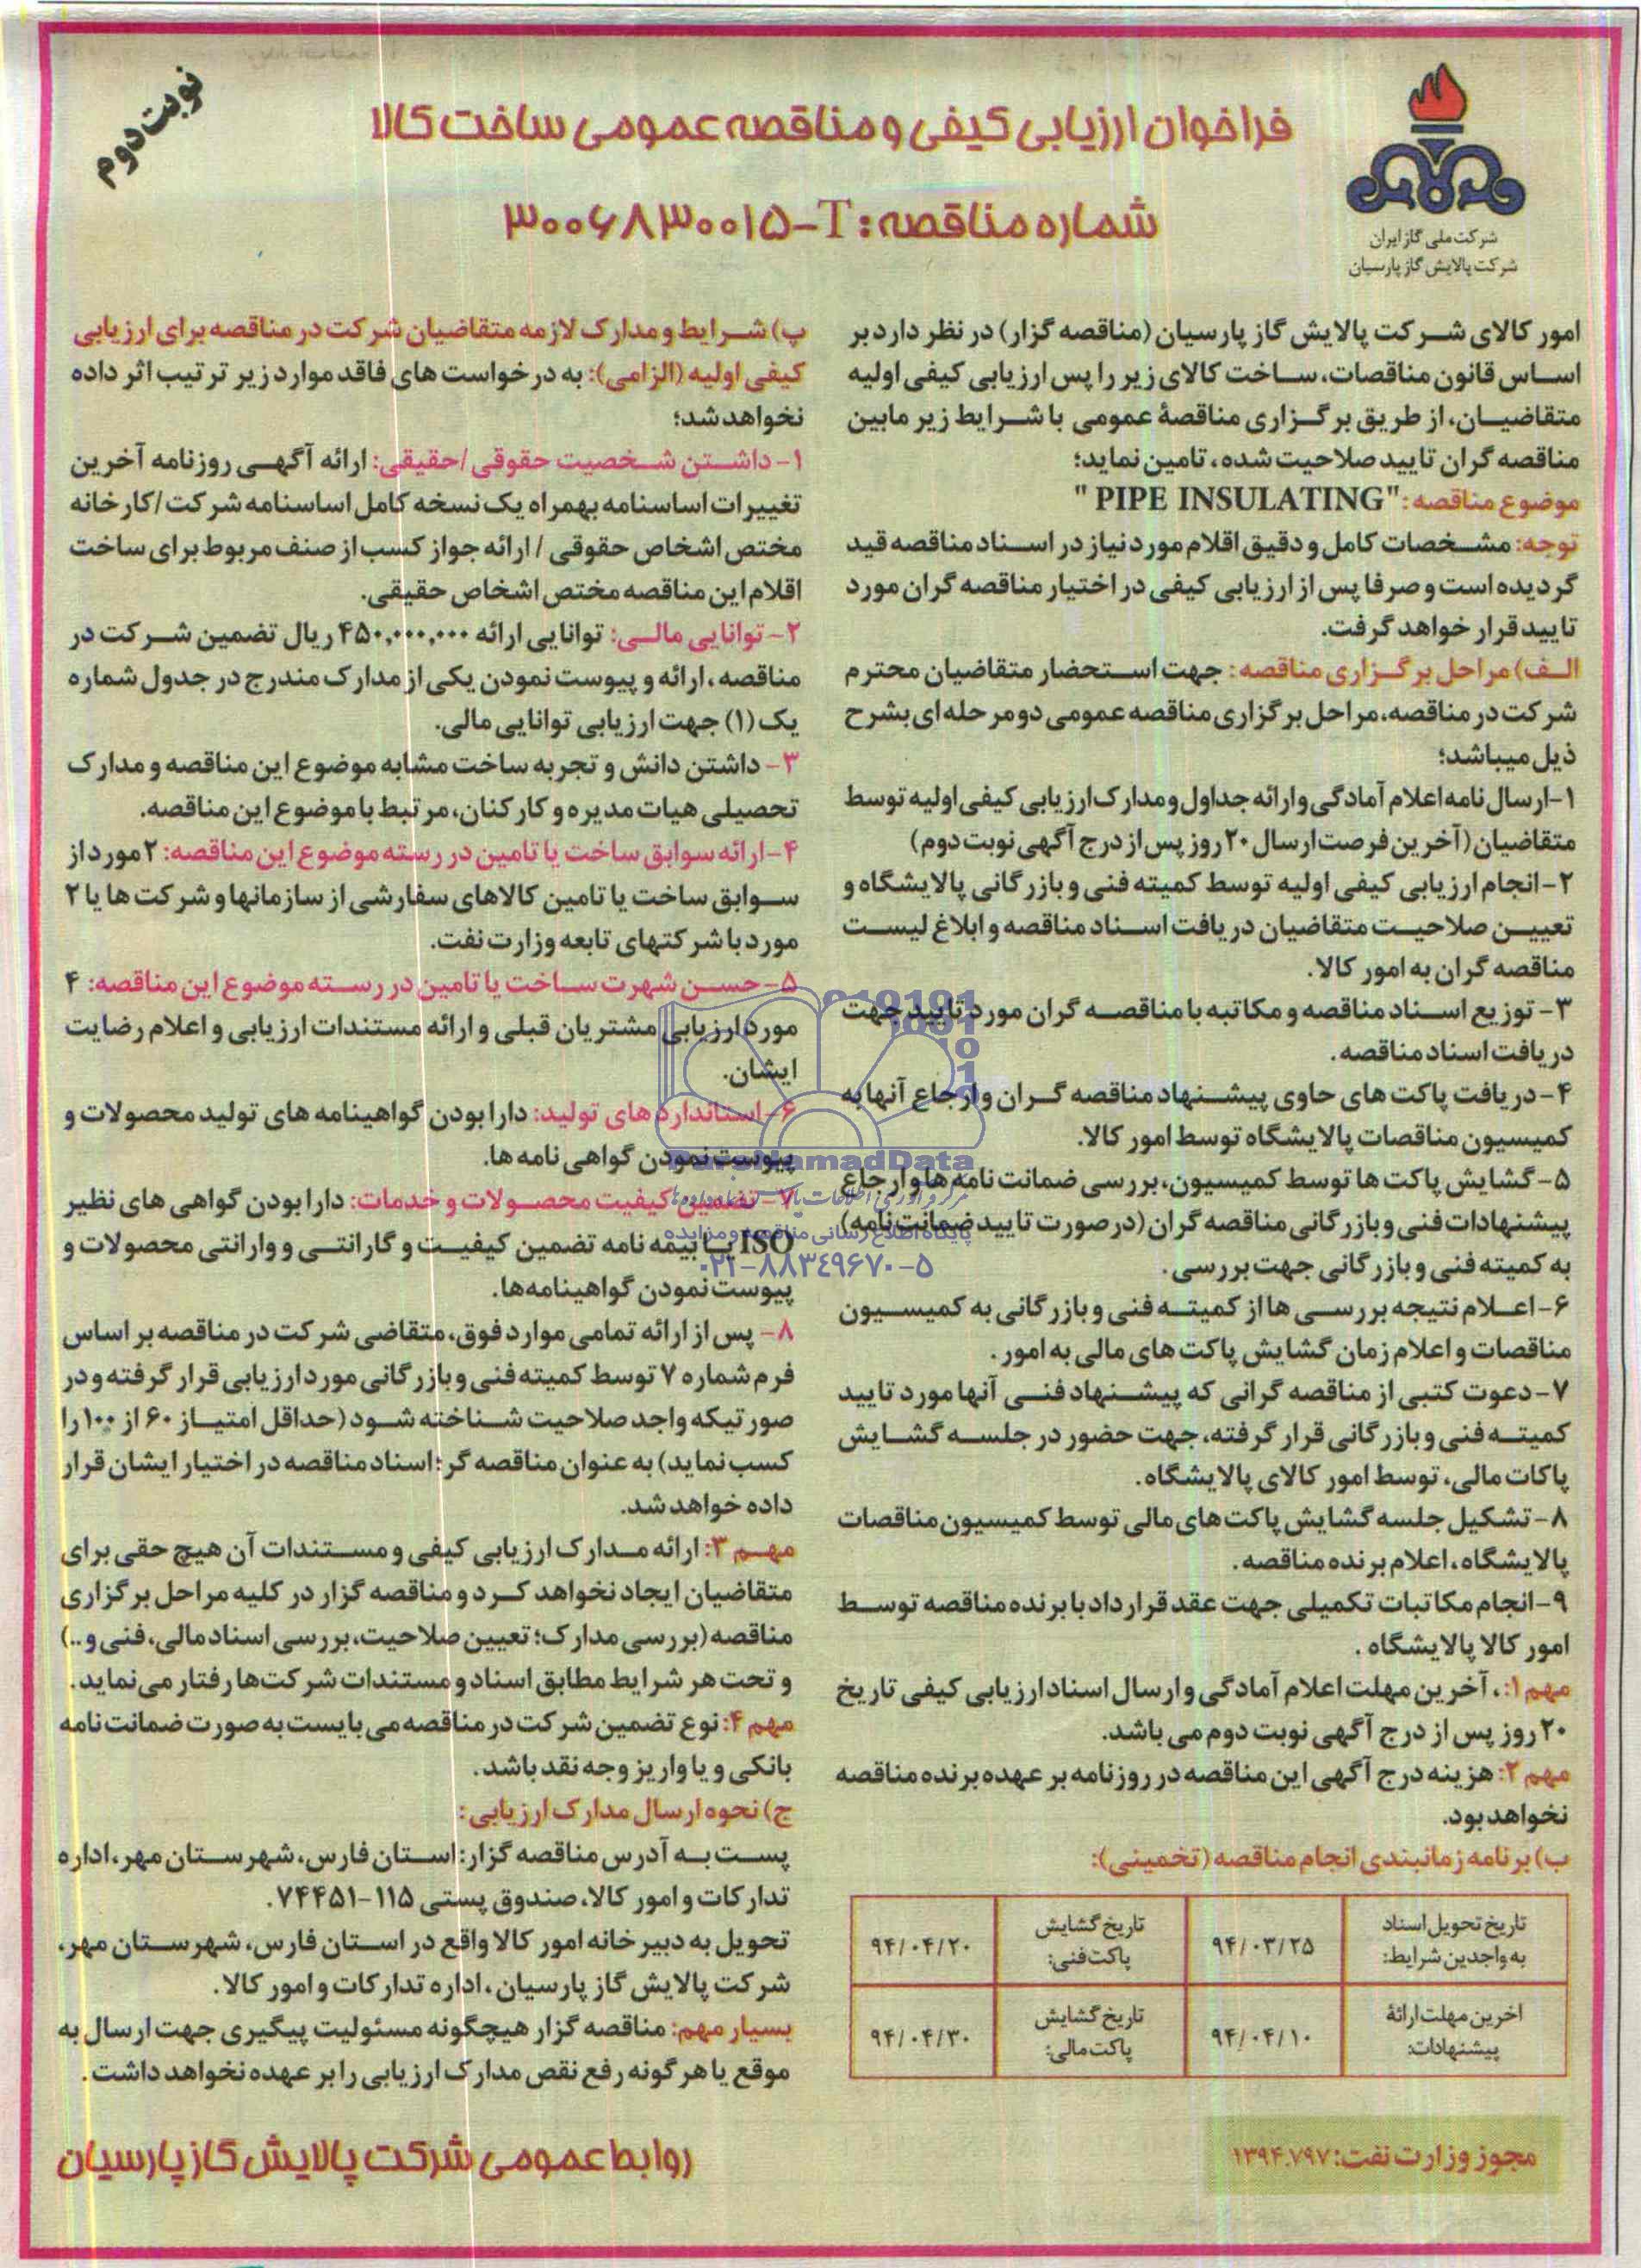 نوبت دوم
فراخوان ارزیابی کیفی و مناقصه عمومی ساخت کالا
شماره مناقصه: T-۳۰۰۶۸۳۰۰۱۵
شرکت ملی گاز ایران
شرکت پالایش گاز پارسیان
امور کالای شرکت پالایش گاز پارسیان (مناقصه گزار) در نظر دارد بر
اساس قانون مناقصات، ساخت کالای زیر را پس ارزیابی کیفی اولیه
متقاضیان، از طریق برگزاری مناقصهٔ عمومی با شرایط زیر مابین
مناقصه گران تایید صلاحیت شده، تامین نماید؛
موضوع مناقصه: "PIPE INSULATING "
توجه: مشخصات کامل و دقیق اقلام مورد نیاز در اسناد مناقصه قید
گردیده است و صرفا پس از ارزیابی کیفی در اختیار مناقصه گران مورد
تایید قرار خواهد گرفت.
الف) مراحل برگزاری مناقصه: جهت استحضار متقاضیان محترم
شرکت در مناقصه، مراحل برگزاری مناقصه عمومی دو مرحله ای بشرح
ذیل میباشد؛
۱-ارسال نامه اعلام آمادگی و ارائه جداول و مدارک ارزیابی کیفی اولیه توسط
متقاضیان (آخرین فرصت ارسال ۲۰ روز پس از درج آگهی نوبت دوم)
۲-انجام ارزیابی کیفی اولیه توسط کمیته فنی و بازرگانی پالایشگاه و
تعیین صلاحیت متقاضیان دریافت اسناد مناقصه و ابلاغ لیست
مناقصه گران به امور کالا.
۳- توزیع اسناد مناقصه و مکاتبه با مناقصه گران مورد تایید جهت
دریافت اسناد مناقصه.
۴-دریافت پاکت های حاوی پیشنهاد مناقصه گران و ارجاع آنها به
کمیسیون مناقصات پالایشگاه توسط امور کالا.
۵- گشایش پاکت ها توسط کمیسیون، بررسی ضمانت نامه ها و ارجاع
پیشنهادات فنی و بازرگانی مناقصه گران (در صورت تایید ضمانت نامه)
به کمیته فنی و بازرگانی جهت بررسی.
۶-اعلام نتیجه بررسی ها از کمیته فنی و بازرگانی به کمیسیون
مناقصات و اعلام زمان گشایش پاکت های مالی به امور.
۷-دعوت کتبی از مناقصه گرانی که پیشنهاد فنی آنها مورد تایید
کمیته فنی و بازرگانی قرار گرفته، جهت حضور در جلسه گشایش
پاکات مالی، توسط امور کالای پالایشگاه.
۸-تشکیل جلسه گشایش پاکت های مالی توسط کمیسیون مناقصات
پالایشگاه، اعلام برنده مناقصه.
۹-انجام مکاتبات تکمیلی جهت عقد قرارداد با برنده مناقصه توسط
امور کالا پالایشگاه .
مهم ۱:، آخرین مهلت اعلام آمادگی و ارسال اسناد ارزیابی کیفی تاریخ
۲۰ روز پس از درج آگهی نوبت دوم می باشد.
مهم ۲: هزینه درج آگهی این مناقصه در روزنامه بر عهده برنده مناقصه
نخواهد بود.
ب) برنامه زمانبندی انجام مناقصه (تخمینی):
تاریخ تحویل اسناد به واجدین شرایط: ۹۴/۰۳/۲۵ تاریخ گشایش پاکت فنی: ۹۴/۰۴/۲۰
اخرین مهلت ارائهٔ پیشنهادات: ۹۴/۰۴/۱۰ تاریخ گشایش پاکت مالی: ۹۴/۰۴/۳۰
مجوز وزارت نفت: ۱۳۹۴.۷۹۷
پ) شرایط و مدارک لازمه متقاضیان شرکت در مناقصه برای ارزیابی
کیفی اولیه (الزامی): به درخواست های فاقد موارد زیر ترتیب اثر داده
نخواهد شد؛
۱- داشتن شخصیت حقوقی /حقیقی: ارائه آگهی روزنامه آخرین
تغییرات اساسنامه بهمراه یک نسخه کامل اساسنامه شرکت/کارخانه
مختص اشخاص حقوقی / ارائه جواز کسب از صنف مربوط برای ساخت
اقلام این مناقصه مختص اشخاص حقیقی.
۲- توانایی مالی: توانایی ارائه ۴۵۰,۰۰۰,۰۰۰ ریال تضمین شرکت در
مناقصه، ارائه و پیوست نمودن یکی از مدارک مندرج در جدول شماره
یک (۱) جهت ارزیابی توانایی مالی.
۳- داشتن دانش و تجربه ساخت مشابه موضوع این مناقصه و مدارک
تحصیلی هیات مدیره و کارکنان، مرتبط با موضوع این مناقصه.
۴-ارائه سوابق ساخت یا تامین در رسته موضوع این مناقصه: ۲ مورد از
سوابق ساخت یا تامین کالاهای سفارشی از سازمانها و شرکت ها یا ۲
مورد با شرکتهای تابعه وزارت نفت.
۵-حسن شهرت ساخت یا تامین در رسته موضوع این مناقصه: ۴
مورد ارزیابی مشتریان قبلی و ارائه مستندات ارزیابی و اعلام رضایت
ایشان.
۶-استاندارد های تولید: دارا بودن گواهینامه های تولید محصولات و
پیوست نمودن گواهی نامه ها.
۷- تضمین کیفیت محصولات و خدمات: دارا بودن گواهی های نظیر
ISO یا بیمه نامه تضمین کیفیت و گارانتی و وارانتی محصولات و
پیوست نمودن گواهینامه ها.
۸- پس از ارائه تمامی موارد فوق، متقاضی شرکت در مناقصه بر اساس
فرم شماره ۷ توسط کمیته فنی و بازرگانی مورد ارزیابی قرار گرفته و در
صورتیکه واجد صلاحیت شناخته شود (حداقل امتیاز ۶۰ از ۱۰۰ را
کسب نماید) به عنوان مناقصه گر؛ اسناد مناقصه در اختیار ایشان قرار
داده خواهد شد.
مهم ۳: ارائه مدارک ارزیابی کیفی و مستندات آن هیچ حقی برای
متقاضیان ایجاد نخواهد کرد و مناقصه گزار در کلیه مراحل برگزاری
مناقصه (بررسی مدارک؛ تعیین صلاحیت، بررسی اسناد مالی، فنی و ..)
و تحت هر شرایط مطابق اسناد و مستندات شرکت ها رفتار می نماید.
مهم ۴: نوع تضمین شرکت در مناقصه می بایست به صورت ضمانت نامه
بانکی و یا واریز وجه نقد باشد.
ج) نحوه ارسال مدارک ارزیابی:
پست به آدرس مناقصه گزار: استان فارس، شهرستان مهر، اداره
تدارکات و امور کالا، صندوق پستی ۱۱۵-۷۴۴۵۱.
تحویل به دبیرخانه امور کالا واقع در استان فارس، شهرستان مهر،
شرکت پالایش گاز پارسیان، اداره تدارکات و امور کالا.
بسیار مهم: مناقصه گزار هیچگونه مسئولیت پیگیری جهت ارسال به
موقع یا هر گونه رفع نقص مدارک ارزیابی را بر عهده نخواهد داشت.
روابط عمومی شرکت پالایش گاز پارسیان
ParsNamadData
پایگاه اطلاع رسانی مناقصه و مزایده
۰۲۱-۸۸۳۴۹۶۷۰-۵